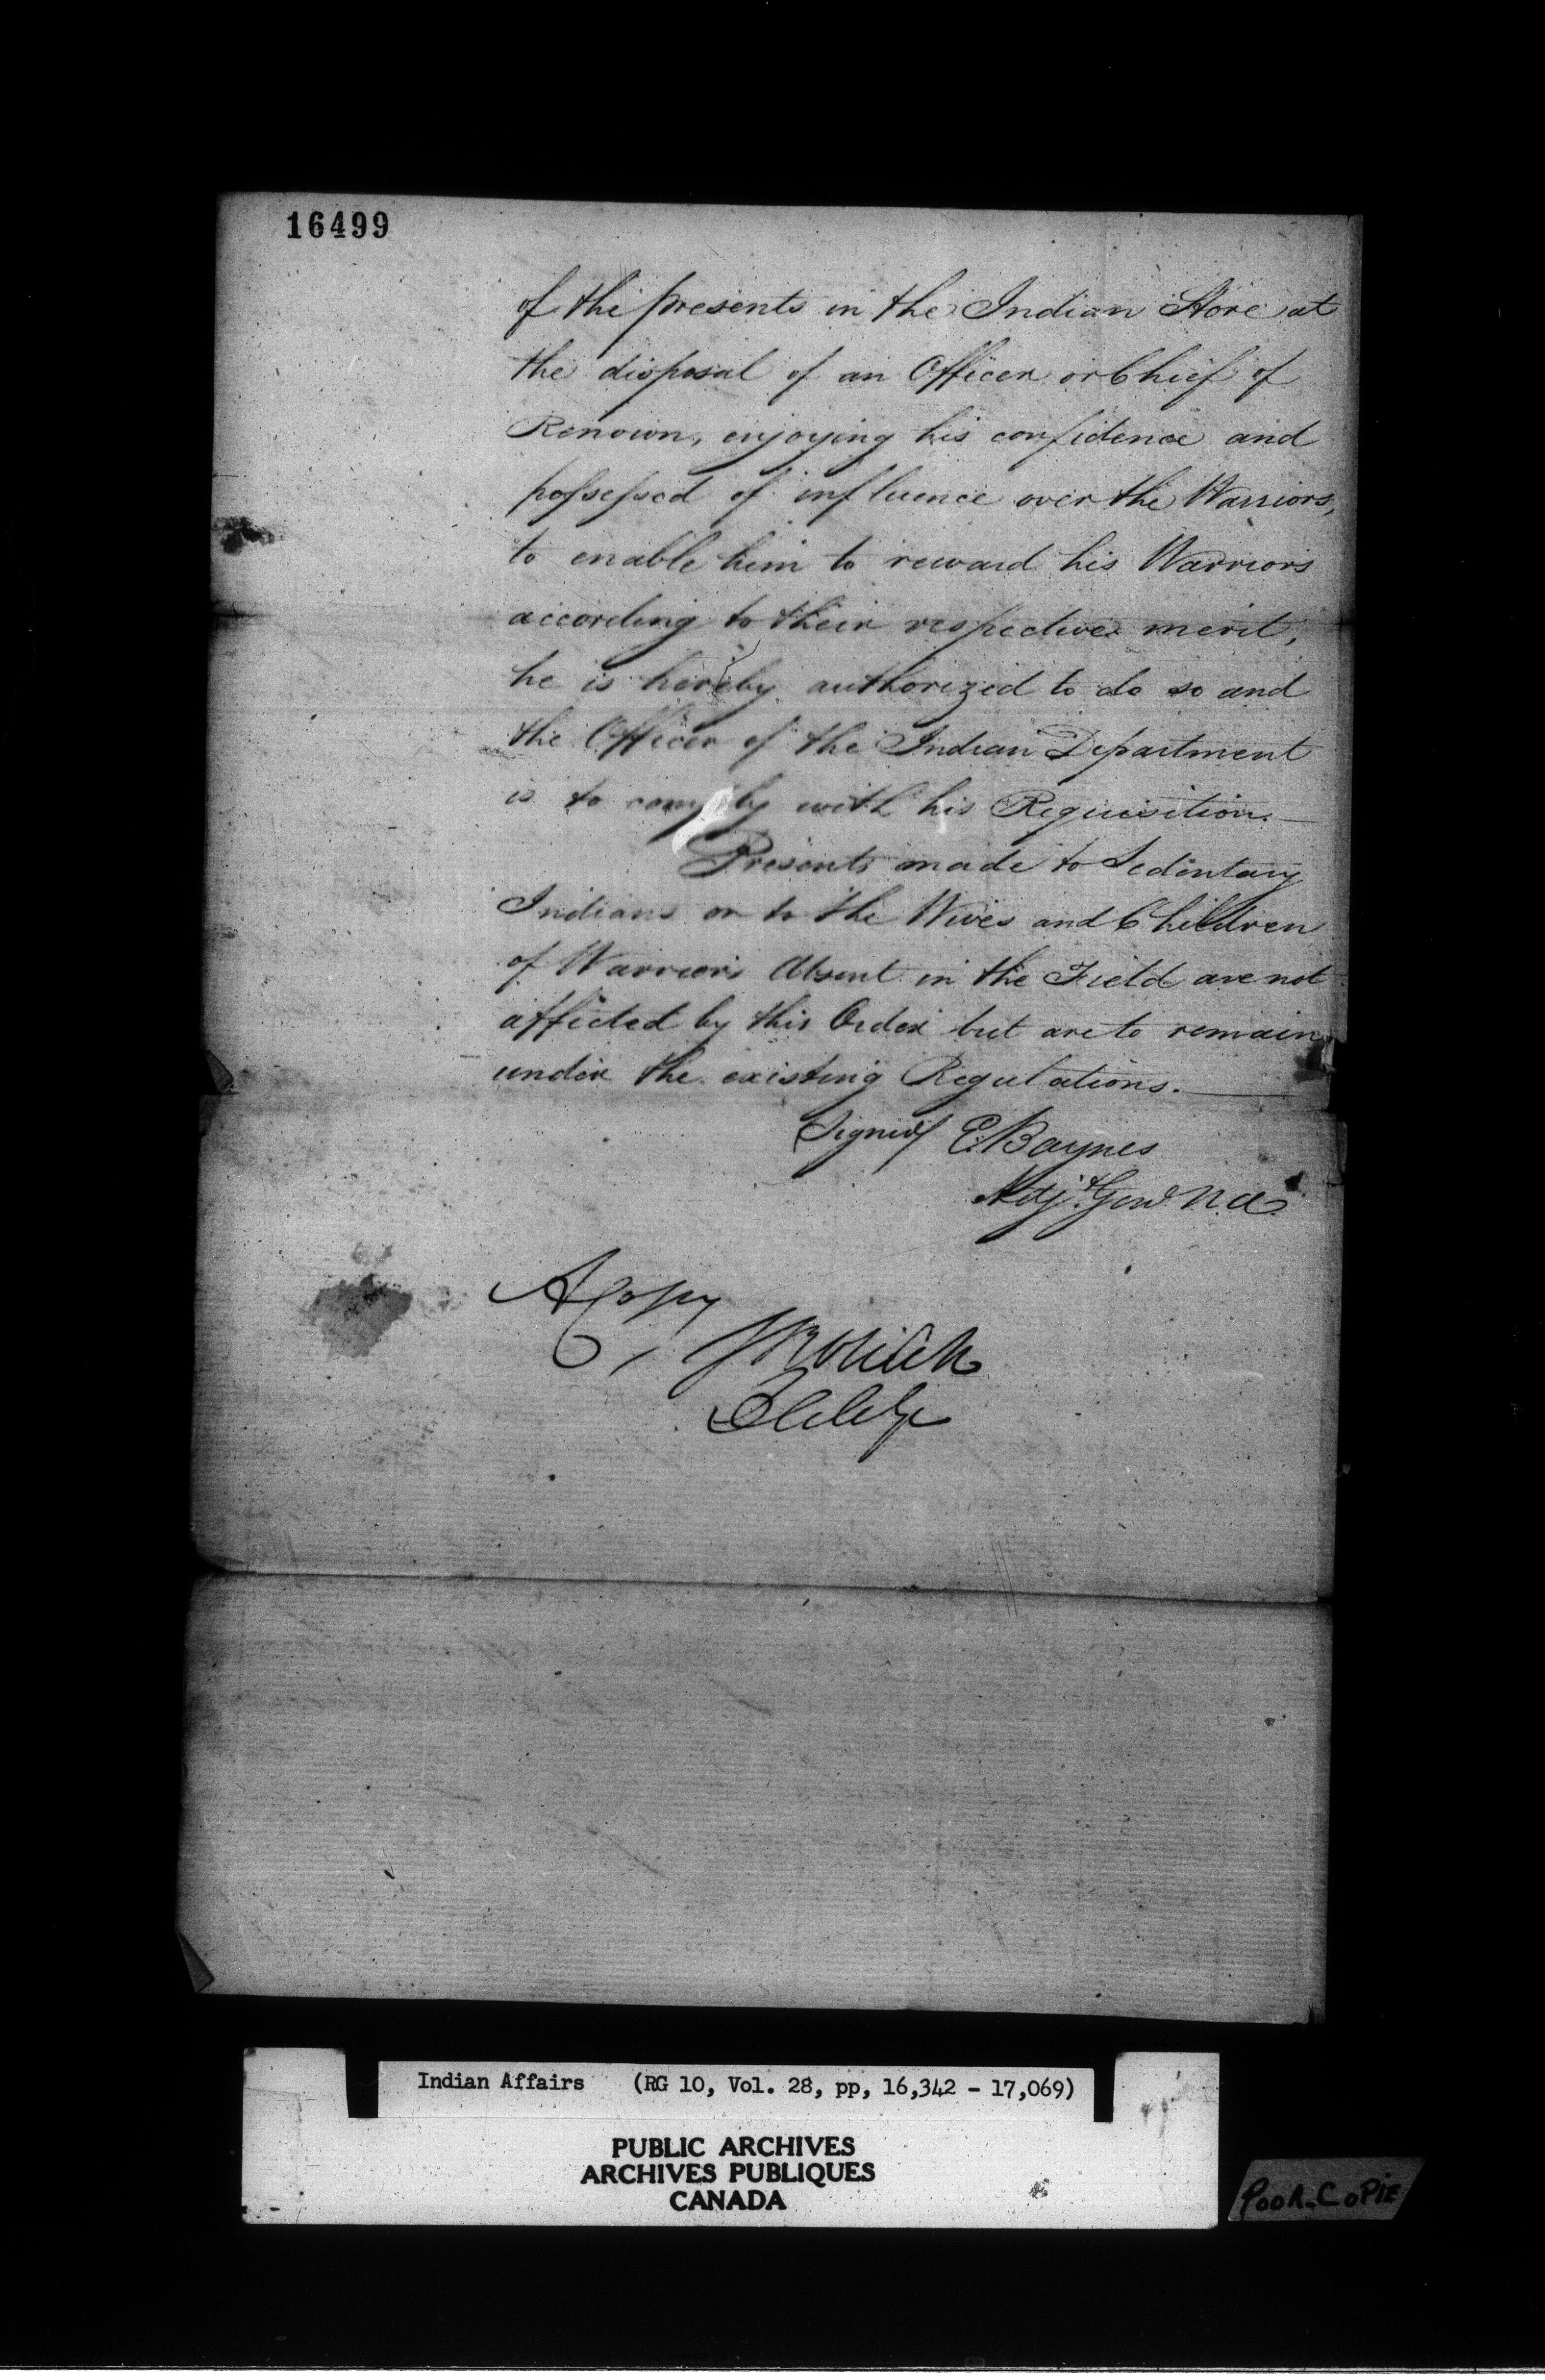 16499
of the presents in the Indian Store at
the disposal of an Officer or Chief of
Renown, enjoying his confidence and
possessed of influence over the Warriors,
to enable him to reward his Warriors
according to their respective merit,
he is hereby authorized to do so and
the Officer of the Indian Department
is to comply with his Requisition.
Presents made to Sedentary
Indians or to the Wives and Children
of Warriors Absent in the Field are not
affected by this Order but are to remain
under the existing Regulations.
Signed E. Baynes
Adjt. Genl. N.A.
A Copy
Indian Affairs (RG 10, Vol. 28, pp, 16,342 - 17,069)
PUBLIC ARCHIVES
ARCHIVES PUBLIQUES
CANADA
POOR COPIE